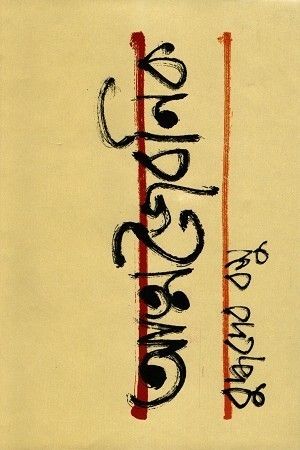 আত্মজৈবনিক
বুদ্ধদেব বসু